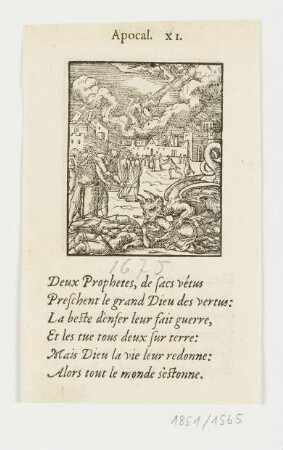 Apocal. XI.
1675
Deux Prophetes, de sacs vétus
Preschent le grand Dieu des vertus:
La beste d'enfer leur fait guerre,
Et les tue tous deux sur terre:
Mais Dieu la vie leur redonne:
Alors tout le monde s'estonne.
1851/1565